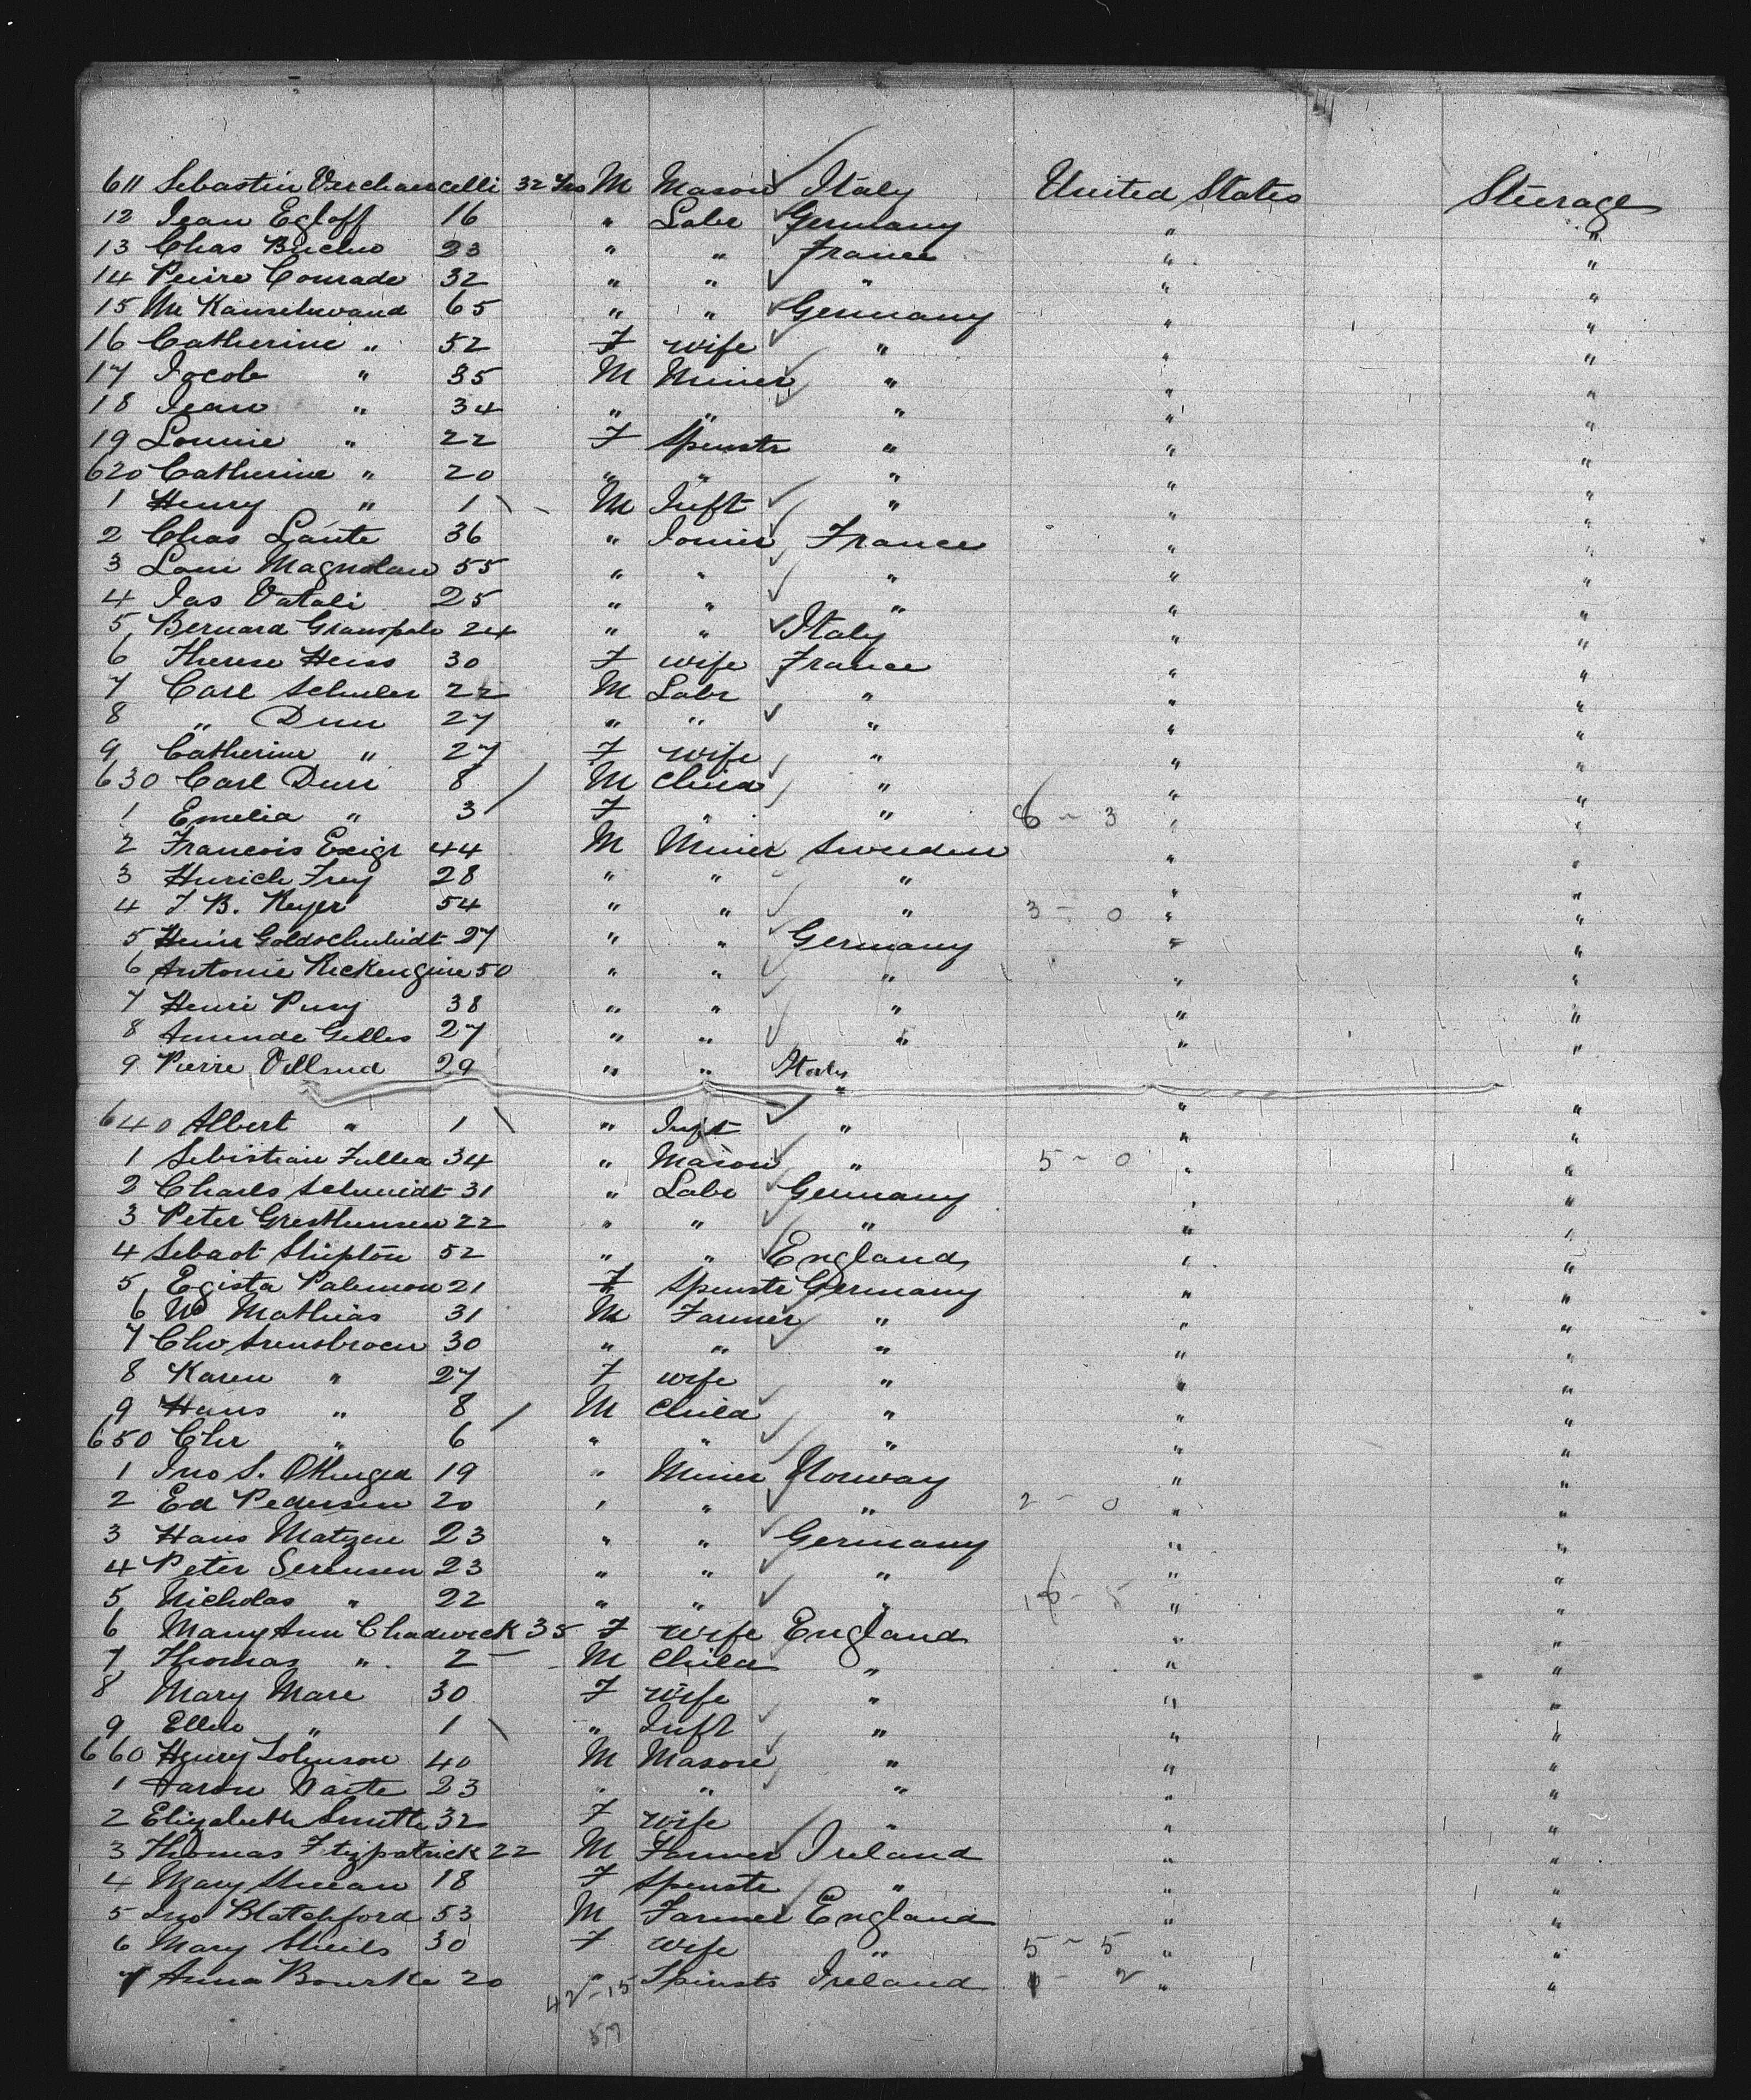 611 Sebastin Verchaencelli 32 Yrs M Mason Italy United States Steerage
12 Jean Egloff 16 " Labr Germany " "
13 Chas Bucher 23 " " France " "
14 Peirre Conrade 32 " " " " "
15 Mr Kaunehwand 65 " " Germany " "
16 Catherine " 52 F wife " " "
17 Jacob " 35 M Miner " " "
18 Jean " 34 " " " " "
19 Lonnie " 22 F Spinstr " " "
620 Catherine " 20 " " " " "
1 Henry " 1 M Inft " " "
2 Chas Lante 36 " Joiner France " "
3 Loui Magnolan 55 " " " " "
4 Jas Vatali 25 " " " " "
5 Bernard Granopalo 24 " " Italy " "
6 Therese Heiss 30 F wife France " "
7 Carl Schuler 22 M Labr " " "
8 " Durr 27 " " " " "
9 Catherine " 27 F wife " " "
630 Carl Durr 8 M Child " " "
1 Emelia " 3 F " " 6 - 3 " "
2 Francois Exigr 44 M Miner Sweden " "
3 Hurich Frey 28 " " " " "
4 J. B. Keyer 54 " " " 3 - 0 " "
5 Heinr Goldschmidt 27 " " Germany " "
6 Antonie Reckengine 50 " " " " "
7 Henri Pury 38 " " " " "
8 Amende Gelles 27 " " " " "
9 Pierre Villand 29 " " Italy " "
640 Albert " 1 " Inft " " "
1 Sebistian Fullea 34 " Mason " 5 - 0 " "
2 Charls Schmidt 31 " Labr Germany " "
3 Peter Gresthunsen 22 " " " " "
4 Sebast Shipton 52 " " England " "
5 Egista Palemon 21 F Spinstr Germany " "
6 Wm Mathias 31 M Farmer " " "
7 Chr Arensbroen 30 " " " " "
8 Karen " 27 F wife " " "
9 Hans " 8 M Child " " "
650 Chr " 6 " " " " "
1 Jno S. Ottinged 19 " Miner Norway " "
2 Ed Pedersen 20 " " " 2 - 0 " "
3 Hans Matzen 23 " " Germany " "
4 Peter Serensen 23 " " " " "
5 Nicholas " 22 " " " 16 - 5 " "
6 Mary Ann Chadwick 35 F wife England " "
7 Thomas " 2 M Child " " "
8 Mary Mare 30 F wife " " "
9 Ellen " 1 " Inft " " "
660 Henry Johnson 40 M Mason " " "
1 Aaron Waite 23 " " " " "
2 Elizabeth Smith 32 F wife " " "
3 Thomas Fitzpatrick 22 M Farmer Ireland " "
4 Mary Sheean 18 F Spinstr " " "
5 Jno Blatchford 53 M Farmer England " "
6 Mary Sheils 30 F wife " 5 - 5 " "
7 Anna Bourke 20 " Spinstr Ireland 1 - 2 " "
42-15
57